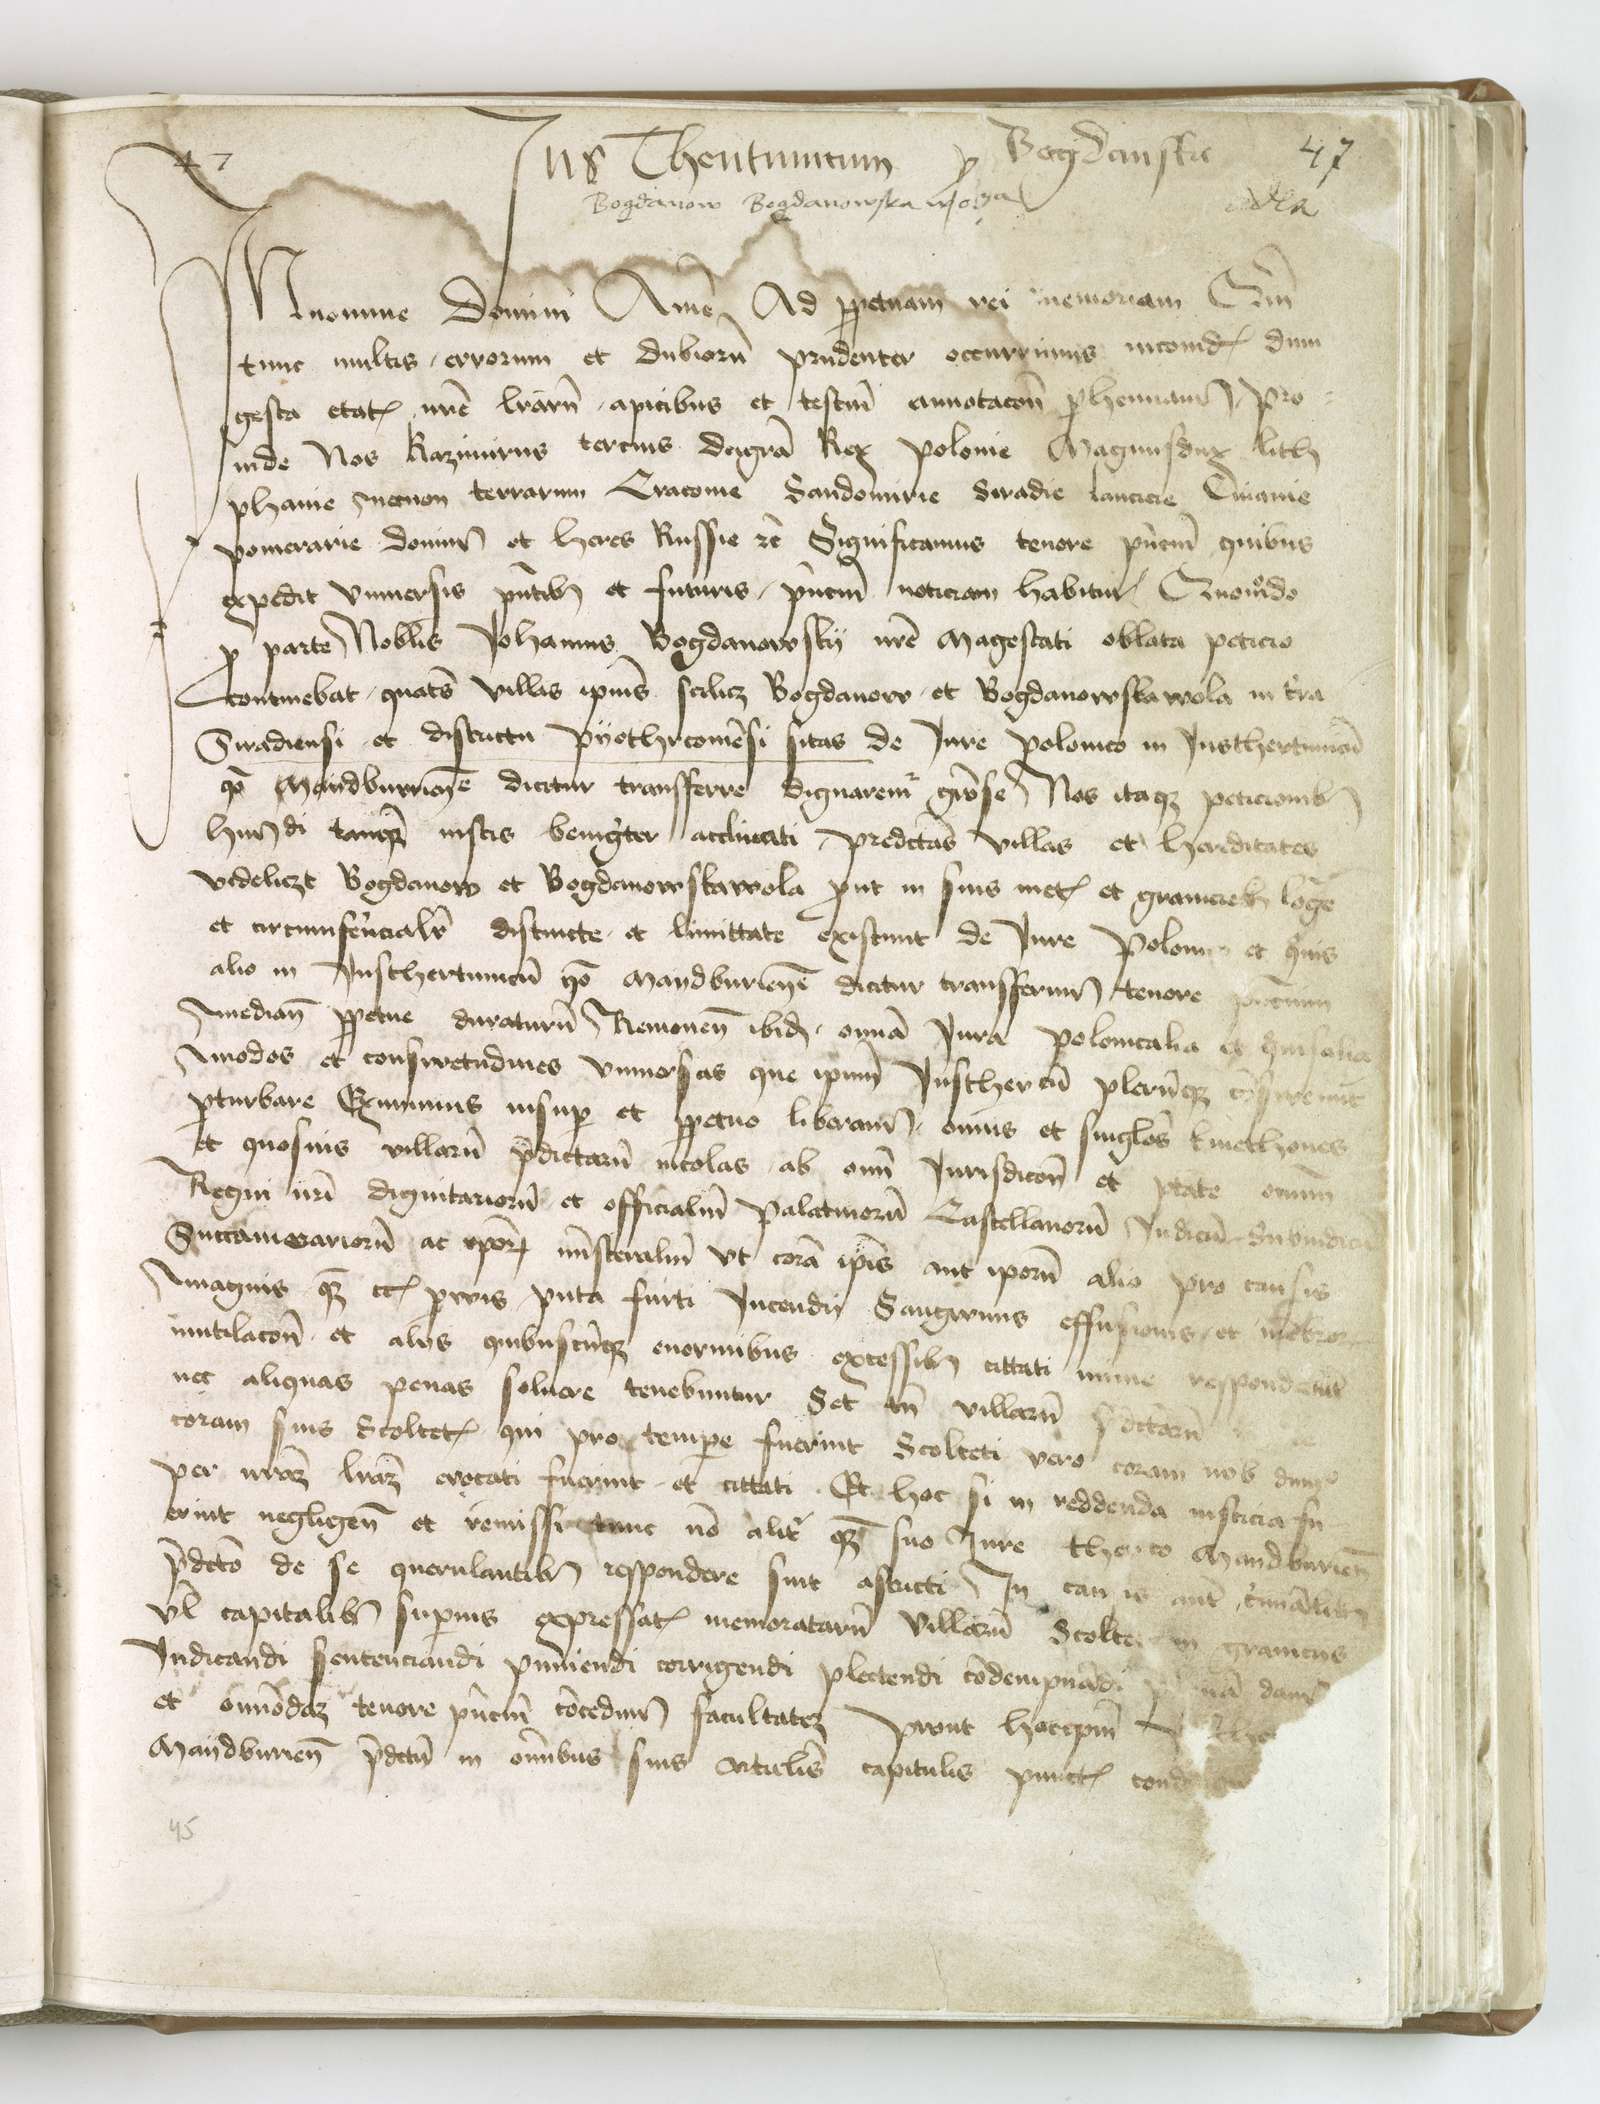 47 Jus Theutunicum p Bogdansky 47
Bogdanow Bogdanowska wola
In nomine Domini Amē Ad ppetuam rei memoriam Cum
tunc multis errorum et dubiorū prudenter occurrimus incomod dum
gesta etat nrē lrarū apicibus et testiū annotacoē phennam Pro
inde Nos Kazimirus tercius deigrā Rex Polonie Magnusdux lith
phanie necnon terrarum Cracovie Sandomirie Siradie Lancicie Cuiavie
pomeranie dominus et heres Russie rc Significamus tenore pntiū quibus
expedit Universis pntibus et futuris pntiū noticiam habitur Quomodo
p parte Nobilis Johannis Bogdanowsky nrē Magestati oblata peticio
continebat quatēs villas ipius scilicz Bogdanow et Bogdanowskawola in trā
Siradiensi et districtu Pyothrcoviēsi sitas de Jure polonico in Justhertunicū
qd Maydburiensē dicitur transferre dignaremur grōse Nos itaqz peticionibus
humdi tamqz iustis benigter acclinati predictas villas et hereditates
videliczt Bogdanow et Bogdanowskawola prout in suis met et granicieb longe
et circumferēcialr distincte et limittate existunt de Jure Polonico et quis
alio in Justhertunicū qd Maydburiensē dicitur transferimus tenore pntium
median ppetue duraturū Removen ibid omā Jura Polonicalia et
modos et consuetudines Universas que ipum Justhertū plerūqz cōsueverūt
pturbare Eximimus insup et ppetuo liberam omēs et singlos kmethones
et quosvis villarū pdictarū incolas ab omī Jurisdicoē et ptate omnium
Regni nrī dignitariorū et officialiū Palatinorū Castellanorū Judicū Subiudicū
Succamerariorū ac ipor ministerialiū Ut corā ipis aut iporū alio pro causis
magnis qz et parvis puta furti Incendii Sangwinis effusionis et mēbror
mutilacoē et aliis quibuscūqz enormibus excessibus cittati minime respondebūt
nec aliquas penas solvere tenebuntur Set tm villarū pdictarū
coram suis Scoltet qui pro tempe fuerint Scolteti vero coram nob dum
per nraz lraz evocati fuerint et cittati Et hoc si in reddenda iusticia fu
erint negligen et remissi tunc nō alitr qz suo Jure theutco Maydburien
pdicto de se querulantibus respondere sint astricti In causis aut crimālibus
vl capitalibus superius expressat memoratarū Villarū Scoltet in graniciis
Judicandi sentenciandi puniendi corrigendi plectendi cōdempnādi damus
et omimodaz tenore pntiū cōcedimus facultatez Prout hocipm
Maydburien pdictū in omībus suis articulis capitulis punct
45